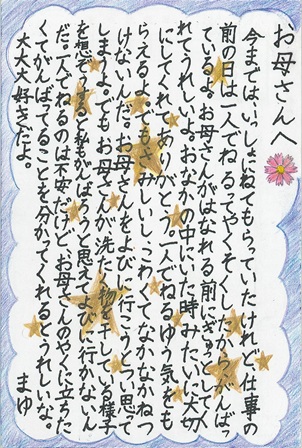 お母さんへ
今まではいっしょにねてもらっていたけれど、仕事の
前の日は一人でねるってやくそくしたからがんばっ
ているよ。お母さんがはなれる前にぎゅっとして
れてうれしいよ。おなかの中にいた時みたいに大切
にしてくれてありがとう。一人でねるゆう気をも
らえるよ。でもさみしいし、こわくてなかなかねつ
けないんだ。お母さんをよびに行こうっていつも思って
しまうよ。でもお母さんが洗たく物を干している様子
を想ぞうすると私もがんばろうと思えてよびに行かないん
だ。一人でねるのは不安だけど、お母さんのやくに立ちた
くてがんばってることを分かってくれるとうれしいな。
大大大好きだよ。
まゆ